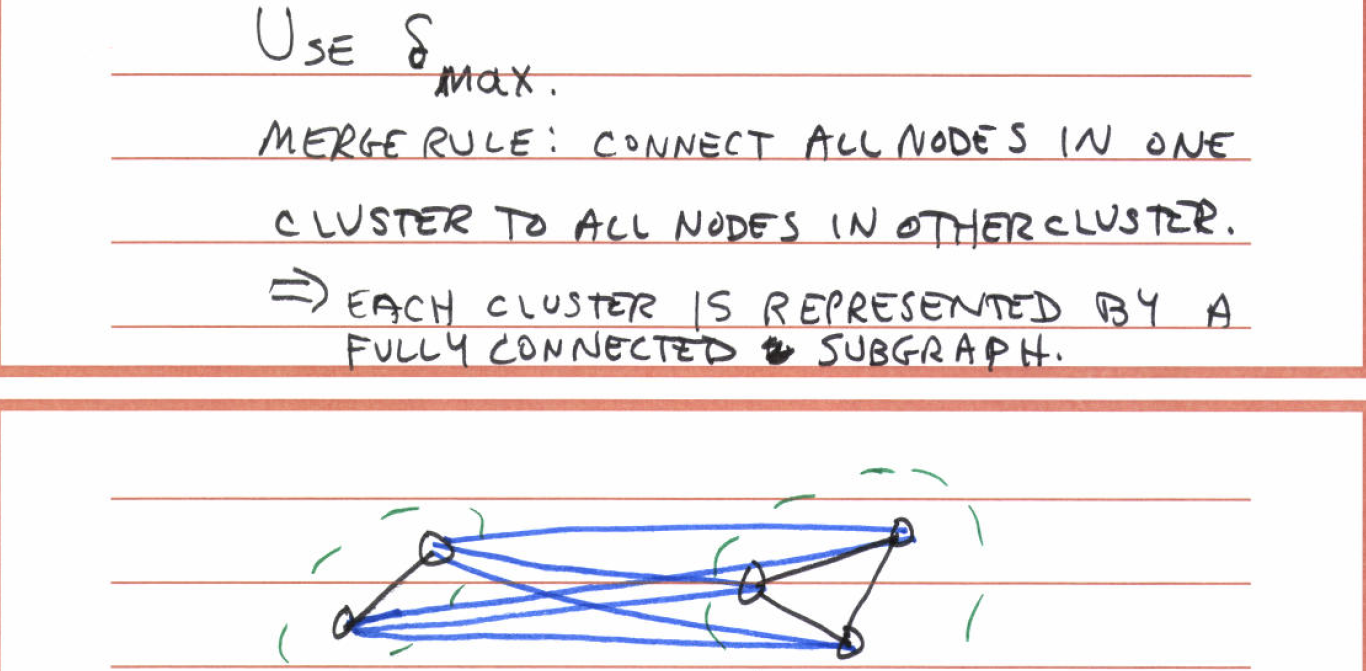 USE δmax.
MERGE RULE: CONNECT ALL NODES IN ONE
CLUSTER TO ALL NODES IN OTHER CLUSTER.
⇒ EACH CLUSTER IS REPRESENTED BY A
FULLY CONNECTED SUBGRAPH.